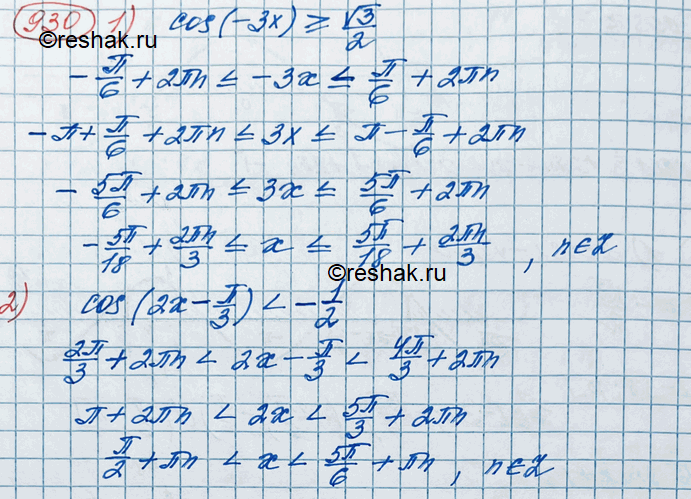 930 1) cos(-3x) ≥ √3/2
©reshak.ru
-π/6 + 2πn ≤ -3x ≤ π/6 + 2πn
-π + π/6 + 2πn ≤ 3x ≤ π - π/6 + 2πn
-5π/6 + 2πn ≤ 3x ≤ 5π/6 + 2πn
-5π/18 + 2πn/3 ≤ x ≤ 5π/18 + 2πn/3, n∈Z
©reshak.ru
2) cos(2x - π/3) < -1/2
2π/3 + 2πn < 2x - π/3 < 4π/3 + 2πn
π + 2πn < 2x < 5π/3 + 2πn
π/2 + πn < x < 5π/6 + πn, n∈Z
©reshak.ru